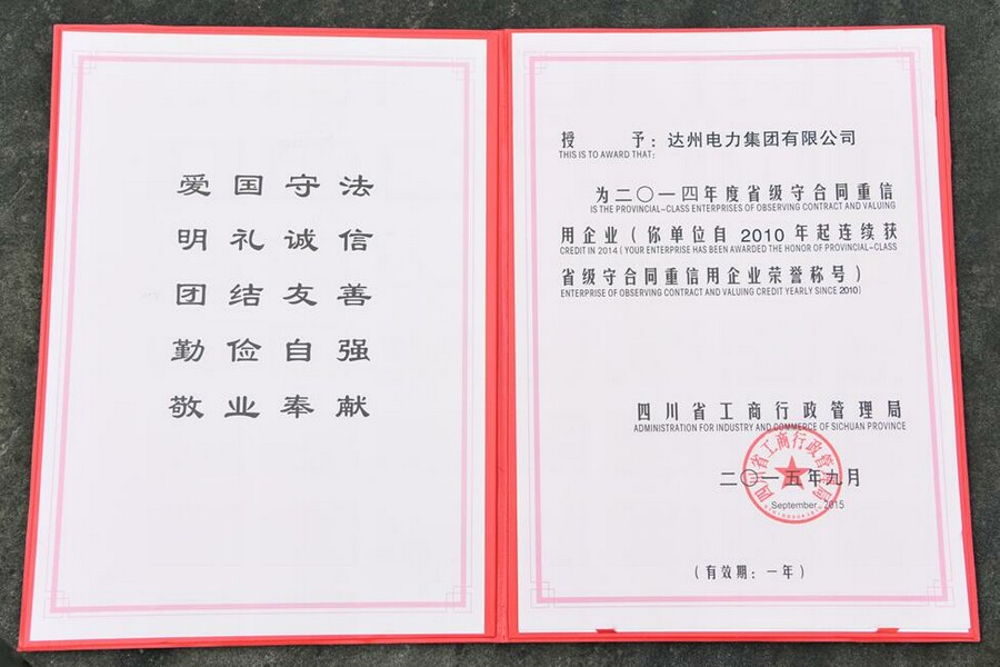 爱国守法
明礼诚信
团结友善
勤俭自强
敬业奉献
授 予：达州电力集团有限公司
THIS IS TO AWARD THAT:
为二〇一四年度省级守合同重信
IS THE PROVINCIAL-CLASS ENTERPRISES OF OBSERVING CONTRACT AND VALUING
用企业（你单位自 2010 年起连续获
CREDIT IN 2014 (YOUR ENTERPRISE HAS BEEN AWARDED THE HONOR OF PROVINCIAL-CLASS
省级守合同重信用企业荣誉称号）
ENTERPRISE OF OBSERVING CONTRACT AND VALUING CREDIT YEARLY SINCE 2010)
四川省工商行政管理局
ADMINISTRATION FOR INDUSTRY AND COMMERCE OF SICHUAN PROVINCE
四川省工商行政管理局
二〇一五年九月
September 2015
（有效期：一年）